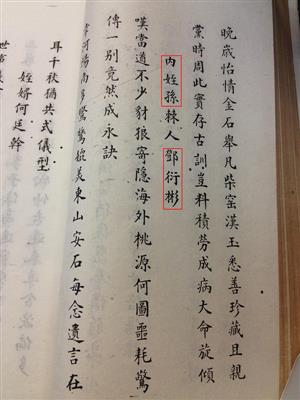 晚歲怡情金石舉凡柴窑漢玉悉善珍藏且親
黨時周此實存古訓豈料積勞成病大命旋傾
內姪孫棘人鄧衍彬
嘆當道不少豺狼寄隱海外桃源何圖噩耗驚
傳一別竟然成永訣
河陽南多驚鶩掟美東山安石每念遺言在
耳千秋猶共式儀型
姪婿何廷幹